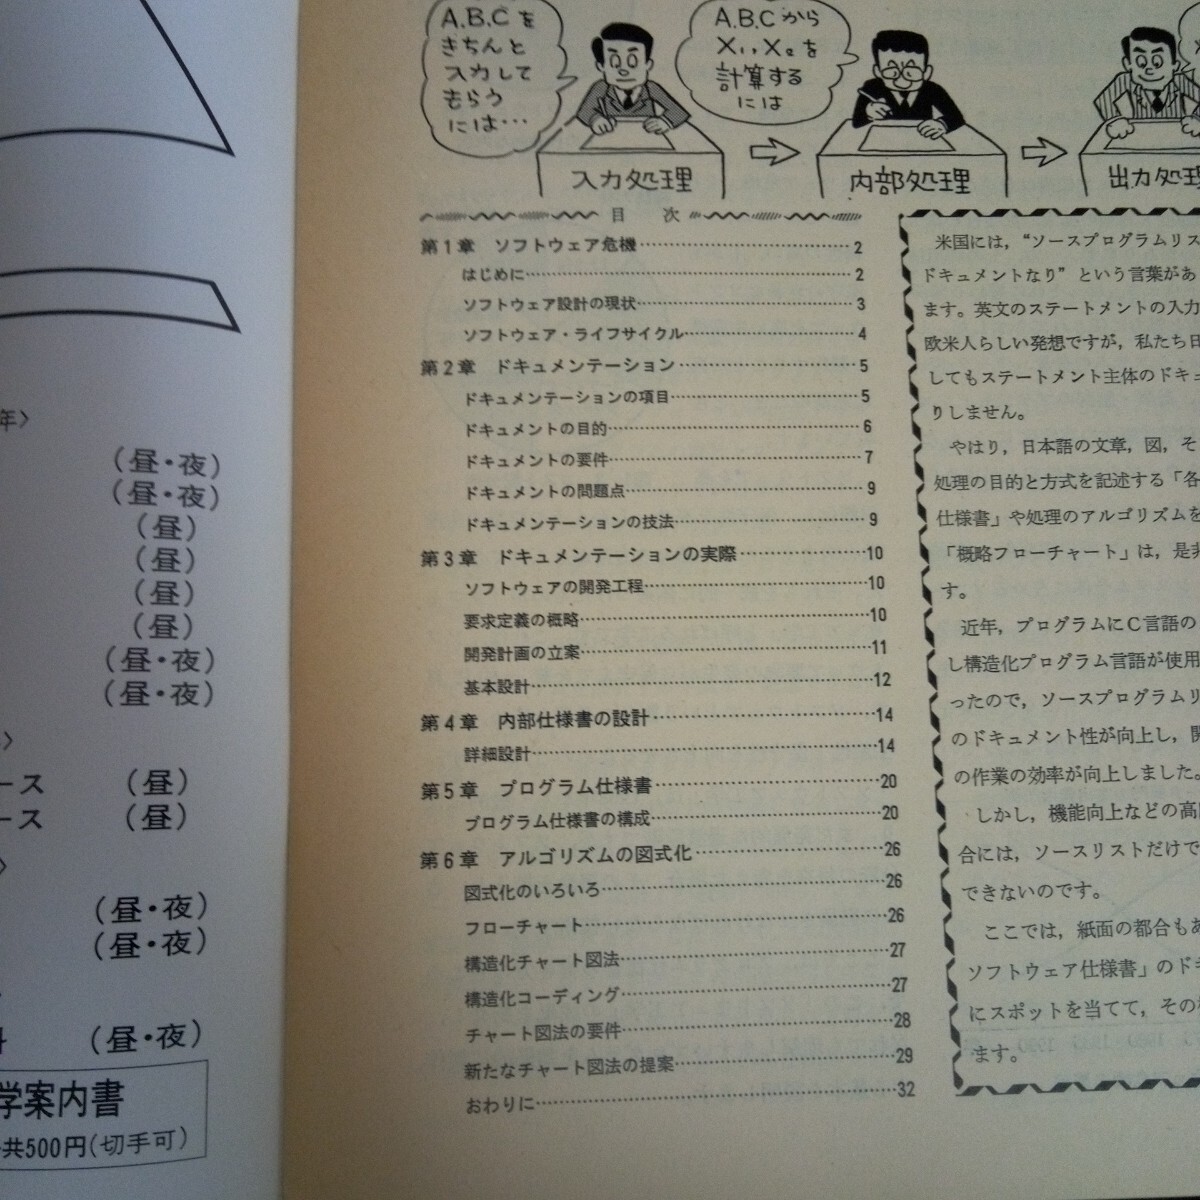 年〉
(昼・夜)
(昼・夜)
(昼)
(昼)
(昼)
(昼)
(昼・夜)
(昼・夜)
〉
ース (昼)
ース (昼)
〉
(昼・夜)
(昼・夜)
(昼・夜)
学案内書
共500円(切手可)
A.B.Cを
きちんと
入力して
もらう
には…
A.B.Cから
X₁,X₂を
計算する
には
入力処理
内部処理
出力処理
目 次
第1章 ソフトウェア危機……2
はじめに……2
ソフトウェア設計の現状……3
ソフトウェア・ライフサイクル……4
第2章 ドキュメンテーション……5
ドキュメンテーションの項目……5
ドキュメントの目的……6
ドキュメントの要件……7
ドキュメントの問題点……9
ドキュメンテーションの技法……9
第3章 ドキュメンテーションの実際……10
ソフトウェアの開発工程……10
要求定義の概略……10
開発計画の立案……11
基本設計……12
第4章 内部仕様書の設計……14
詳細設計……14
第5章 プログラム仕様書……20
プログラム仕様書の構成……20
第6章 アルゴリズムの図式化……26
図式化のいろいろ……26
フローチャート……26
構造化チャート図法……27
構造化コーディング……27
チャート図法の要件……28
新たなチャート図法の提案……29
おわりに……32
米国には，“ソースプログラムリス
ドキュメントなり”という言葉があ
ます。英文のステートメントの入力
欧米人らしい発想ですが，私たち日
してもステートメント主体のドキュ
りしません。
やはり，日本語の文章，図，そ
処理の目的と方式を記述する「各
仕様書」や処理のアルゴリズムを
「概略フローチャート」は，是非
す。
近年，プログラムにC言語の
し構造化プログラム言語が使用
ったので，ソースプログラムリ
のドキュメント性が向上し，開
の作業の効率が向上しました。
しかし，機能向上などの高
合には，ソースリストだけで
できないのです。
ここでは，紙面の都合もあ
ソフトウェア仕様書」のドキ
にスポットを当てて，その
ます。